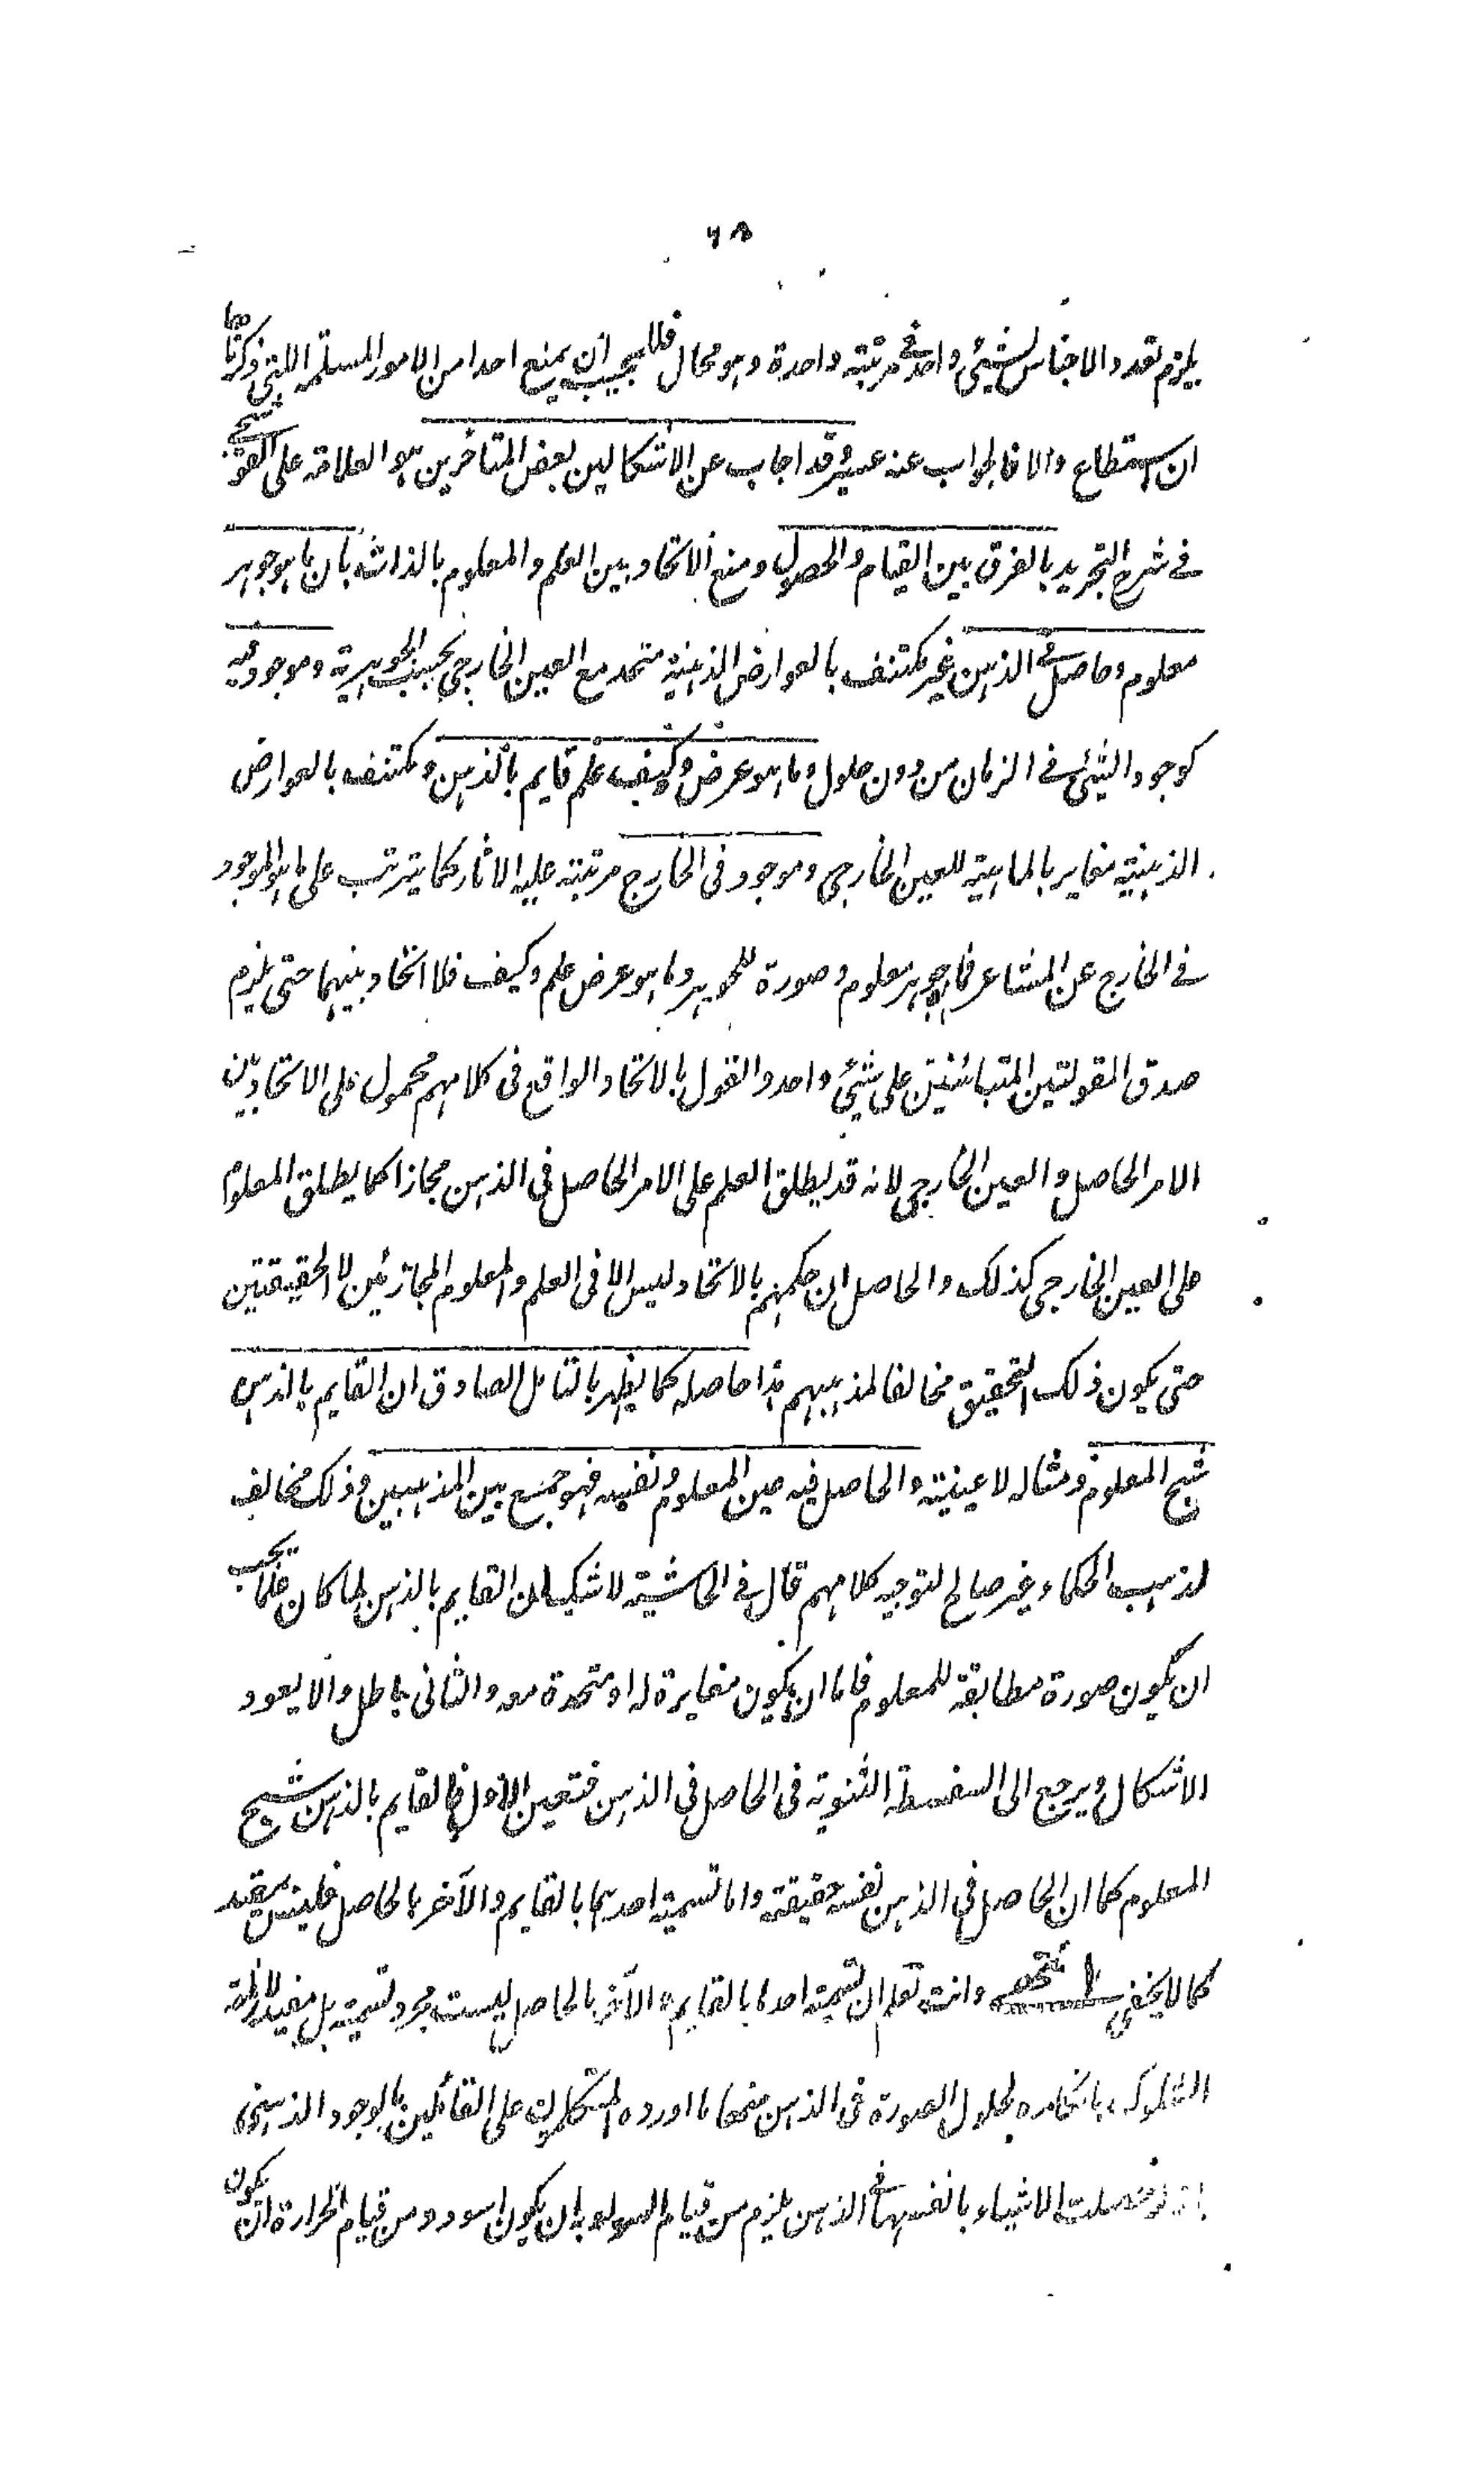 ٦٨
يلزم تعدد الاجناس لشيئ واحد في مرتبة واحدة وهو محال فللمجيب ان يمنع احدا من الامور المسلمة التي ذكرناها
ان استطاع والا فالجواب عنه عسير وقد اجاب عن الاشكالين بعض المتاخرين هو العلامة علي القوشجي
في شرح التجريد بالفرق بين القيام والحصول ومنع الاتحاد بين العلم والمعلوم بالذات بأن ما هو جوهر
معلوم وحاصل في الذهن غير مكتنف بالعوارض الذهنية متحد مع العين الخارجي بحسب الجوهرية وموجود فيه
كوجود الشيئ في الزمان من دون حلول وما هو عرض وكيف علم قايم بالذهن ومكتنف بالعوارض
الذهنية مغاير بالماهية للعين الخارجي وموجود في الخارج مرتبة عليه الاثار كما يترتب على ما هو الموجود
في الخارج عن المشاعر فما هو جوهر معلوم وصورة للجوهر وما هو عرض علم وكيف فلا اتحاد بينهما حتى يلزم
صدق المقولتين المتبائنتين على شيئ واحد والقول بالاتحاد الواقع في كلامهم محمول على الاتحاد بين
الامر الحاصل والعين الخارجي لانه قد يطلق العلم على الامر الحاصل في الذهن مجازا كما يطلق المعلوم
على العين الخارجي كذلك والحاصل ان حكمهم بالاتحاد ليس الا في العلم والمعلوم المجازئين لا الحقيقتين
حتى يكون ذلك التحقيق مخالفا لمذهبهم هذا حاصله كما يظهر بالتامل الصادق ان القايم بالذهن
شبح المعلوم ومثاله لا عينية والحاصل فيه عين المعلوم ونفسه فهو جمع بين المذهبين وذلك مخالف
لمذهب الحكماء غير صالح لتوجيه كلامهم قال في الحاشية لا شك ان القايم بالذهن لما كان علما يجب
ان يكون صورة مطابقة للمعلوم فاما ان يكون مغايرة له او متحدة معه والثاني باطل والا يعود
الاشكال ويرجع الى السفسطة الثنوية في الحاصل في الذهن فتعين الاول فالقايم بالذهن شبح
المعلوم كما ان الحاصل في الذهن نفسه حقيقة واما تسمية احدهما بالقايم والآخر بالحاصل فليس بمفيد
كما لا يخفى انتهى وانت تعلم ان تسمية احدهما بالقايم والآخر بالحاصل ليست مجرد تسمية بل مفيد لازالة
الشكوك بانكاره لحلول الصورة في الذهن منها ما اورده المتكلمون على القائلين بالوجود الذهني
حصلت الاشياء بانفسها في الذهن يلزم من قيام السواد به ان يكون اسود ومن قيام الحرارة ان يكون